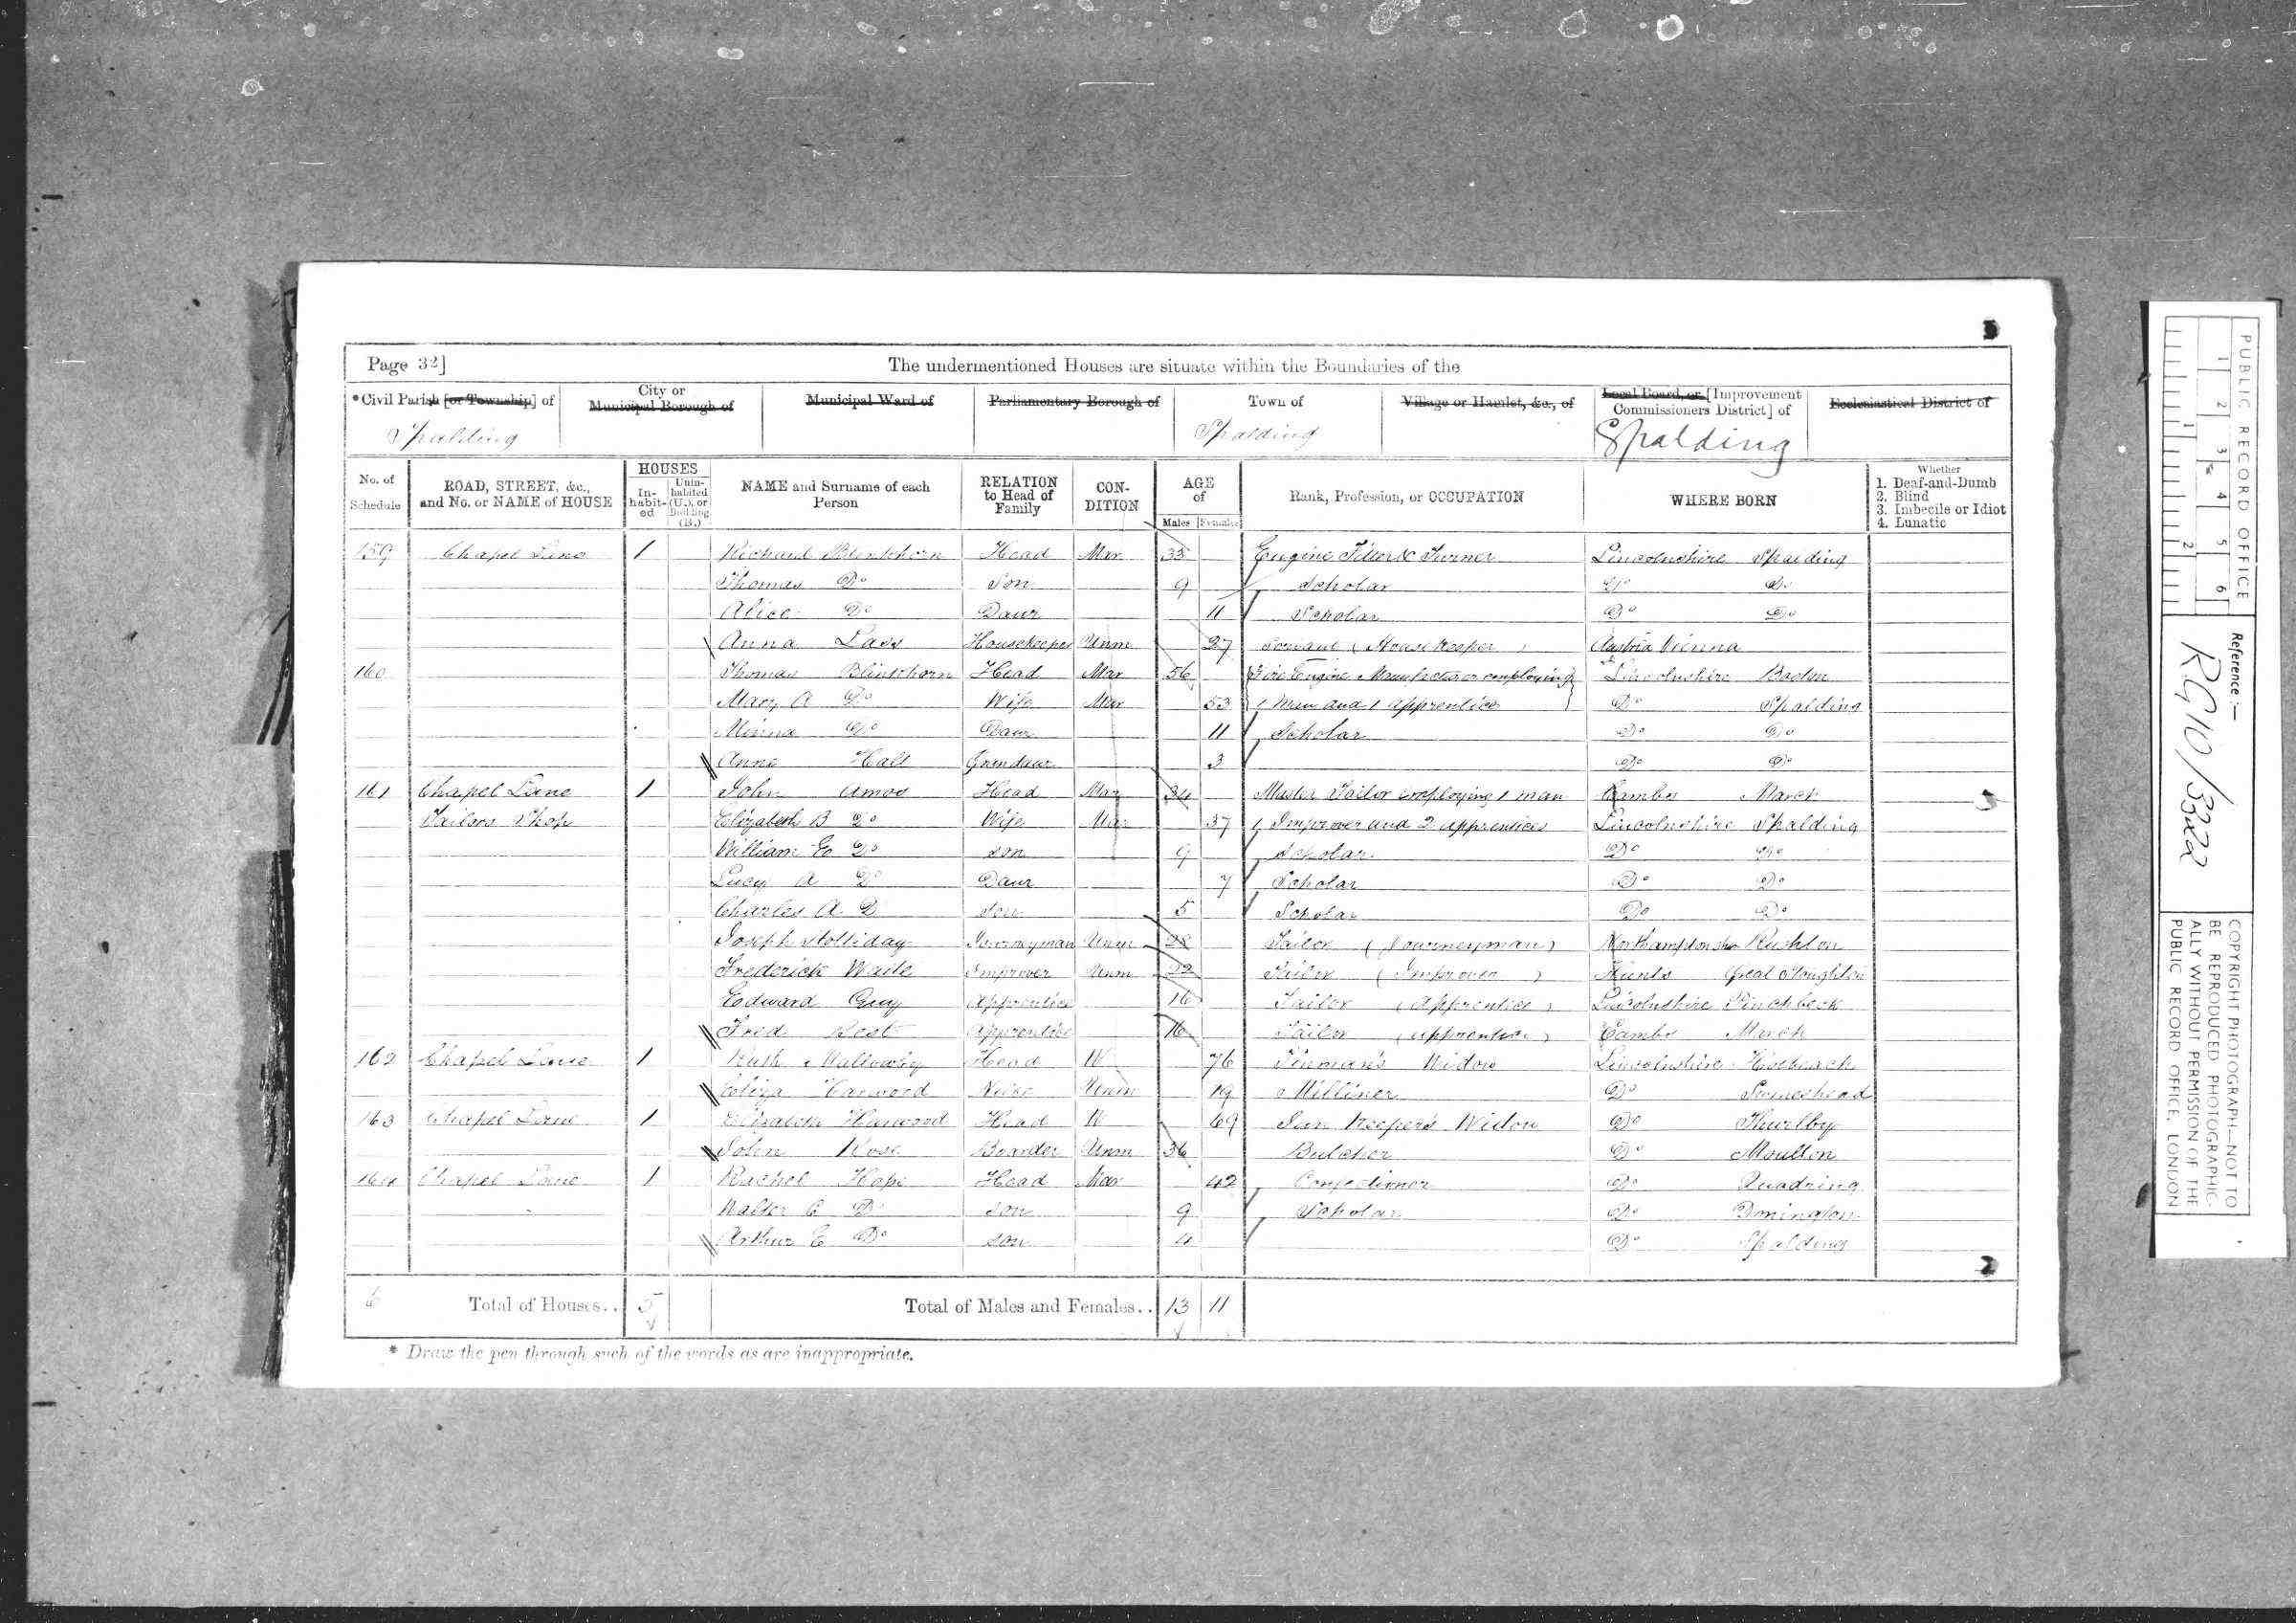 Page 32] The undermentioned Houses are situate within the Boundaries of the
*Civil Parish [or Township] of City or Municipal Borough of Municipal Ward of Parliamentary Borough of Town of Village or Hamlet, &c., of Local Board, or [Improvement Commissioners District] of Ecclesiastical District of
Spalding Spalding Spalding
No. of Schedule ROAD, STREET, &c., and No. or NAME of HOUSE HOUSES Inhabited Uninhabited (U.), or Building (B.) NAME and Surname of each Person RELATION to Head of Family CONDITION AGE of Males Females Rank, Profession, or OCCUPATION WHERE BORN Whether 1. Deaf-and-Dumb 2. Blind 3. Imbecile or Idiot 4. Lunatic
159 Chapel Lane 1 Richard Blinkhorn Head Mar 33 Engine Fitter & Turner Lincolnshire Spalding
Thomas Do Son 9 Scholar Do Do
Alice Do Daur 11 Scholar Do Do
Anna Housekeeper Unm 27 Servant (Housekeeper) Austria Vienna
160 Thomas Blinkhorn Head Mar 56 Fire Engine Manufacturer employing Lincolnshire
Mary A Do Wife Mar 53 1 man and 1 apprentice Do Spalding
Minna Do Daur 11 Scholar Do Do
Anne Hall Grandaur 3 Do Do
161 Chapel Lane 1 John Amos Head Mar 34 Master Tailor employing 1 man Cambs March
Tailors Shop Elizabeth B Do Wife Mar 37 1 Improver and 2 apprentices Lincolnshire Spalding
William E Do Son 9 Scholar Do Do
Lucy A Do Daur 7 Scholar Do Do
Charles A Do Son 5 Scholar Do Do
Joseph Holliday Journeyman Unm 28 Tailor (Journeyman) Northamptonshr Rushton
Frederick Waite Improver Unm 22 Tailor (Improver) Hunts Great Stoughton
Edward Guy Apprentice 16 Tailor (Apprentice) Lincolnshire Pinchbeck
Fred Apprentice 16 Tailor (Apprentice) Cambs March
162 Chapel Lane 1 Ruth Head W 76 Widow Lincolnshire Holbeach
Eliza Harwood Niece Unm 19 Milliner Do Swineshead
163 Chapel Lane 1 Elizabeth Harwood Head W 69 Inn Keeper's Widow Do Thurlby
John Rose Boarder Unm 36 Butcher Do Moulton
164 Chapel Lane 1 Rachel Hope Head Mar 42 Confectioner Do Quadring
Walter C Do Son 9 Scholar Do Donington
Arthur E Do Son 4 Do Spalding
6 Total of Houses.. 5 Total of Males and Females.. 13 11
* Draw the pen through such of the words as are inappropriate.
PUBLIC RECORD OFFICE
1 2 3 4 5 6
1 2
Reference:-
RG 10/3322
COPYRIGHT PHOTOGRAPH—NOT TO
BE REPRODUCED PHOTOGRAPHIC-
ALLY WITHOUT PERMISSION OF THE
PUBLIC RECORD OFFICE, LONDON